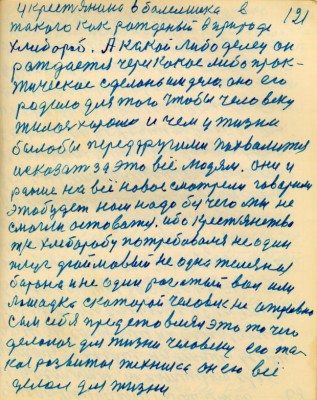 121
у крестянина в болешика в
такого как рожденый в природе
хлибороб. А какой либо делец он
раждается через какое либо прок-
тическое сделоным дело, оно его
родило для того чтобы человеку
жилося хорошо и чем у жизни
было бы перед другими похвалится
и сказат за это всё людям. они и
раньше на всё новое смотрели говорили
это будет нам надо без чего мы не
смогли оставатся. ибо крестянство
же хлиборобу потребовался не один
плуг дваймовый не одна железная
барона и не один рогатый вол или
лошадка с каторой человек не
сам себя предстовлял это то чего
делалося для жизни человеку его та-
кая развитая техника он ею всё
делал для жизни